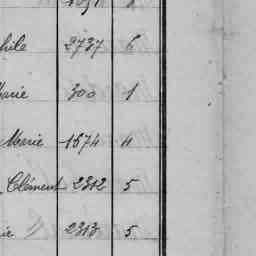 hile 2737 6
Marie 300 1
Marie 1574 4
Clément 2312 5
ie 2313 5